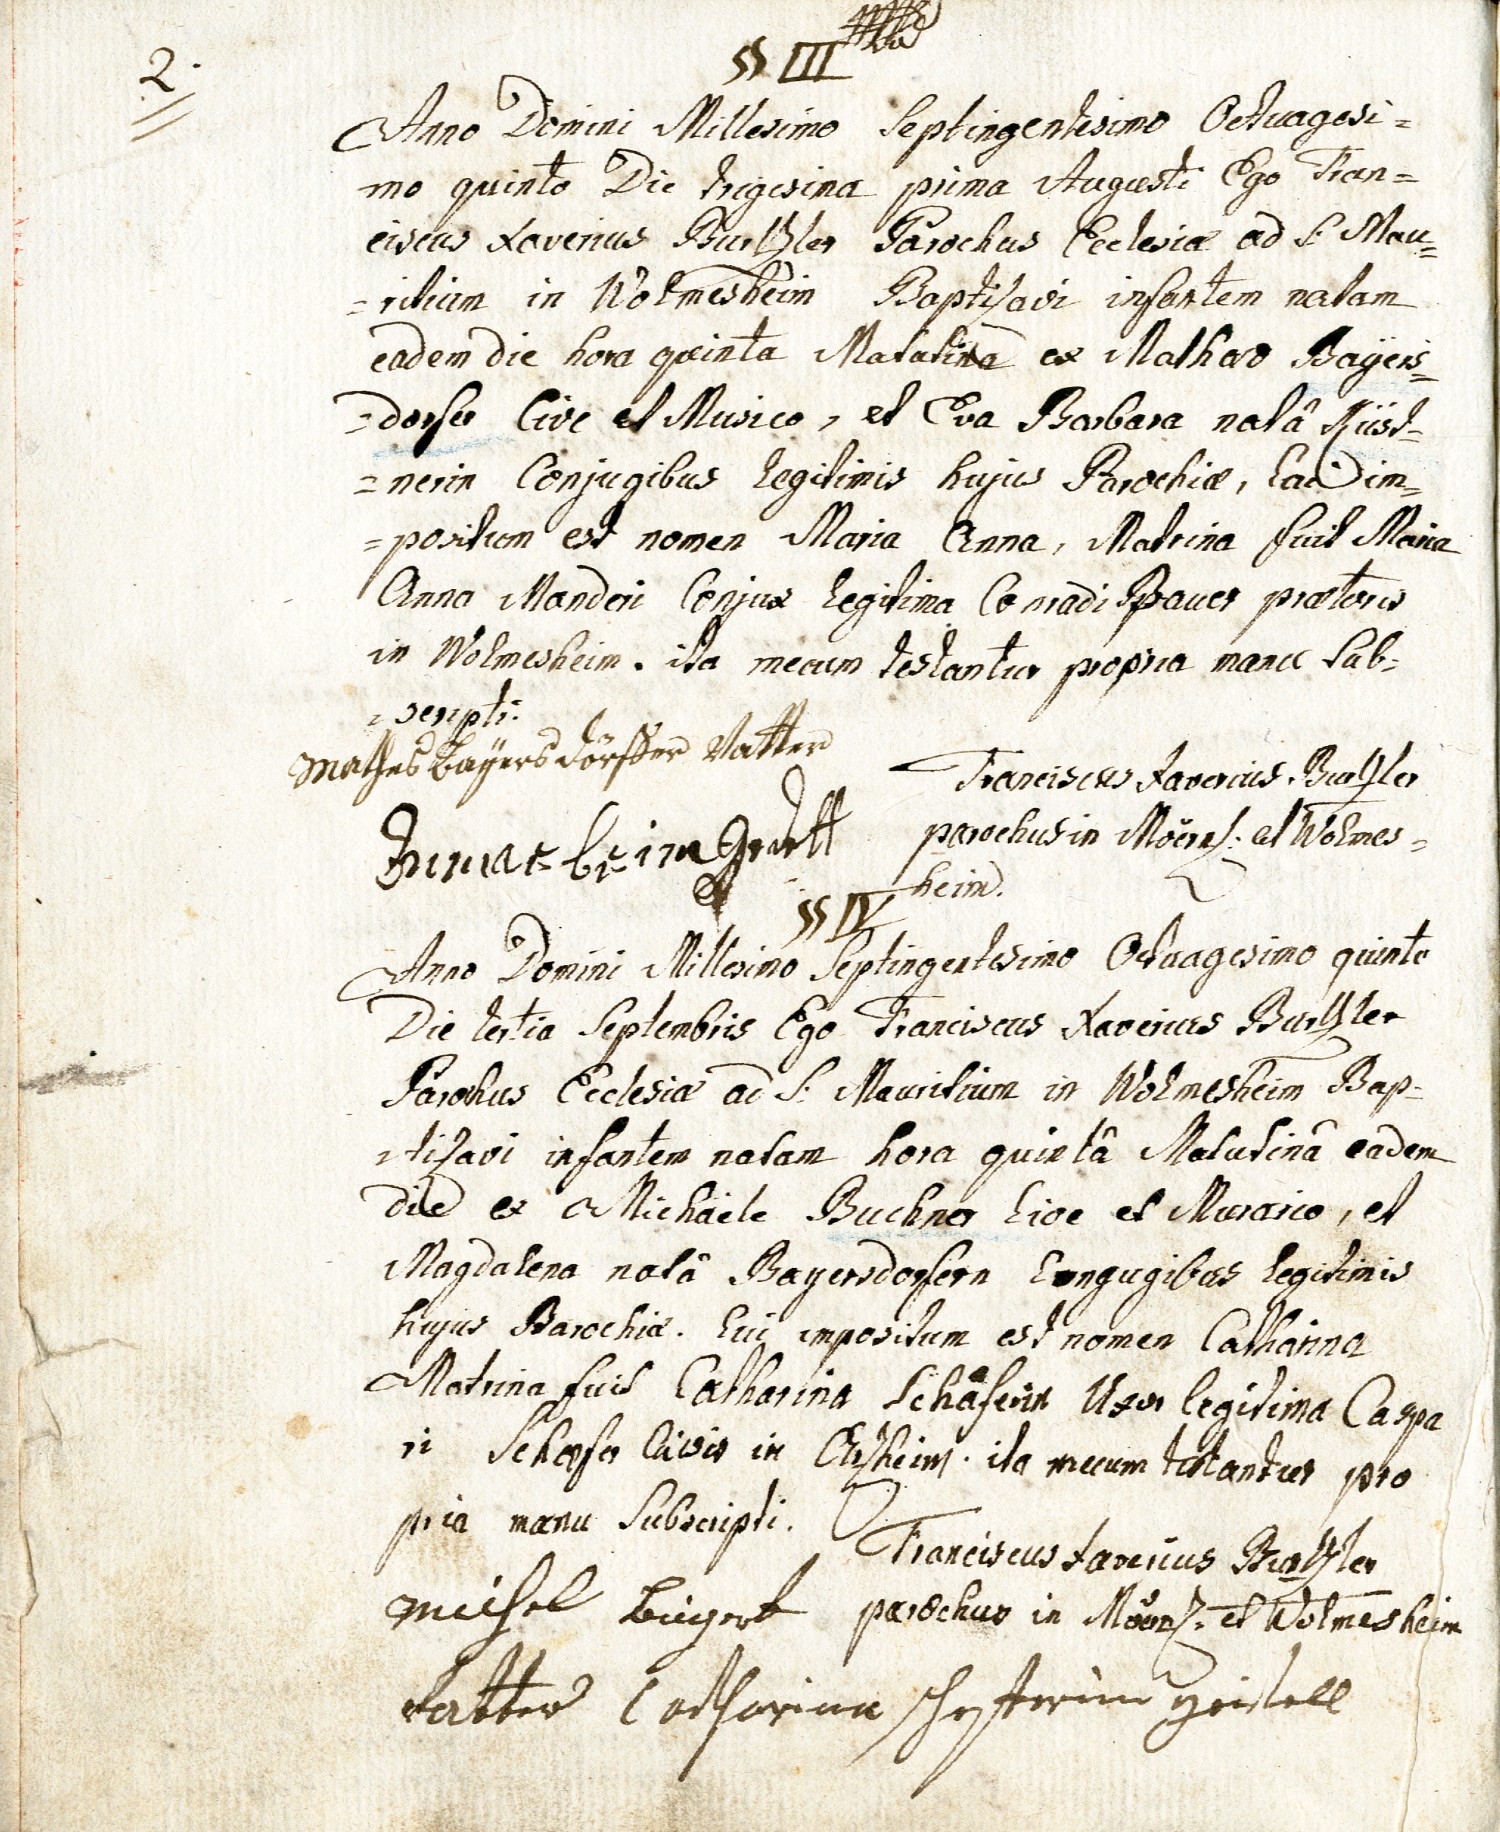 2.
§§ III
Anno Domini Millesimo Septingentesimo Octuagesi=
mo quinto Die trigesima prima Augusti Ego Fran=
ciscus Xaverius Burtzler Parochus Ecclesiæ ad S: Mau=
=ritium in Wolmesheim Baptizavi infantem natam
eadem die hora quinta Matutina ex Mathæo Bayers=
=dorfer Cive et Musico, et Eva Barbara natâ Küst=
=nerin Conjugibus Legitimis hujus Parochiæ, Cui im=
=positum est nomen Maria Anna, Matrina fuit Maria
Anna Manderi Conjux Legitima Conradi Bauer prætoris
in Wolmesheim. ita mecum testantur propria manu Sub=
scripti.
Mathes Bayersdörffer Vatter
Franciscus Xaverius Burtzler
parochus in Mörz: et Wolmes=
heim.
§§ IV
Anno Domini Millesimo Septingentesimo Octuagesimo quinto
Die tertia Septembris Ego Franciscus Xaverius Burtzler
Parochus Ecclesiæ ad S: Mauritium in Wolmesheim Bap=
tizavi infantem natam hora quintâ Matutinâ eadem
die ex Michäele Buchner Cive et Murario, et
Magdalena natâ Bayersdorfern Congugibus Legitimis
hujus Barochiæ. Cui impositum est nomen Catharina
Matrina fuit Catharina Schäferin Uxor legitima Caspa
ri Schæfer Civis in Erzheim. ita mecum testantur pro
pria manu Subscripti.
Franciscus Xaverius Burtzler
parochus in Mörz: et Wolmesheim
Michel
Vatter Catharina